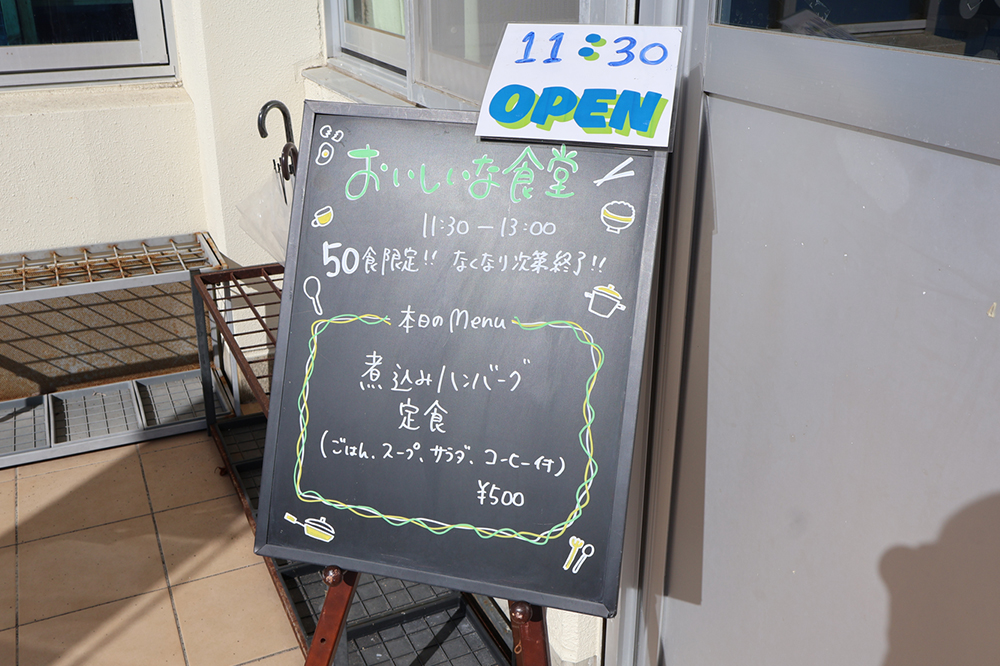 11:30
OPEN
おいしいな食堂
11:30-13:00
50食限定!! なくなり次第終了!!
本日のMenu
煮込みハンバーグ
定食
(ごはん、スープ、サラダ、コーヒー付)
¥500